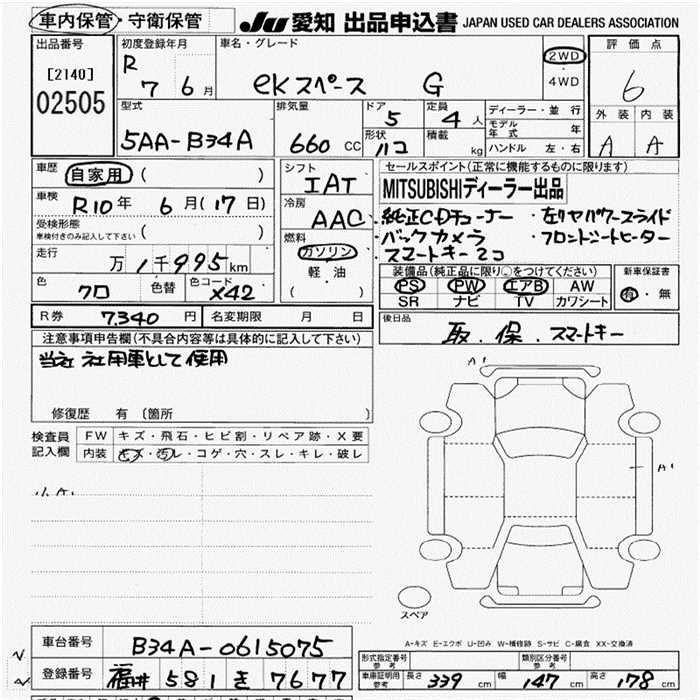 車内保管・守衛保管 JU 愛知 出品申込書 JAPAN USED CAR DEALERS ASSOCIATION
出品番号 初度登録年月 車名・グレード 2WD ・ 4WD 評価点
[2140] R 7 6月 eKスペース G 6
02505 型式 排気量 ドア 5 定員 4人 ディーラー・並行 外装 内装
5AA-B34A 660 CC 形状 ハコ 積載 kg モデル年式 年 A A
ハンドル 左・右
車歴 自家用 ( ) シフト IAT セールスポイント(正常に機能するものに限ります)
車検 R10年 6月(17日) 冷房 AAC MITSUBISHIディーラー出品
受検形態 車検付きのみ記入して下さい ( ) 燃料 ガソリン 軽油 ( )
・純正CDチューナー ・左リヤパワースライド
・バックカメラ ・フロントシートヒーター
・スマートキー2コ
走行 万1千995km
装備品(純正品に限り○をつけてください) 新車保証書
色 クロ 色替 色コード X42 PS PW エアB AW 有・無
SR ナビ TV カワシート
R券 7,340円 名変期限 月 日 後日品
取.保.スマートキー
注意事項申告欄(不具合内容等は具体的に記入して下さい)
当社 社用車として使用
修復歴 有 〔箇所 〕
検査員記入欄 FW キズ・飛石・ヒビ割・リペア跡・X要
内装 キズ・汚レ・コゲ・穴・スレ・キレ・破レ
A1
A1
小A1
スペア
A-キズ E-エクボ U-凹み W-補修跡 S-サビ C-腐食 XX-交換済
車台番号 B34A-0615075
形式指定番号 参考 類別区分番号 参考
登録番号 福井 581 き 7677
車庫証明用 参考 長さ 339cm 幅 147cm 高さ 178cm